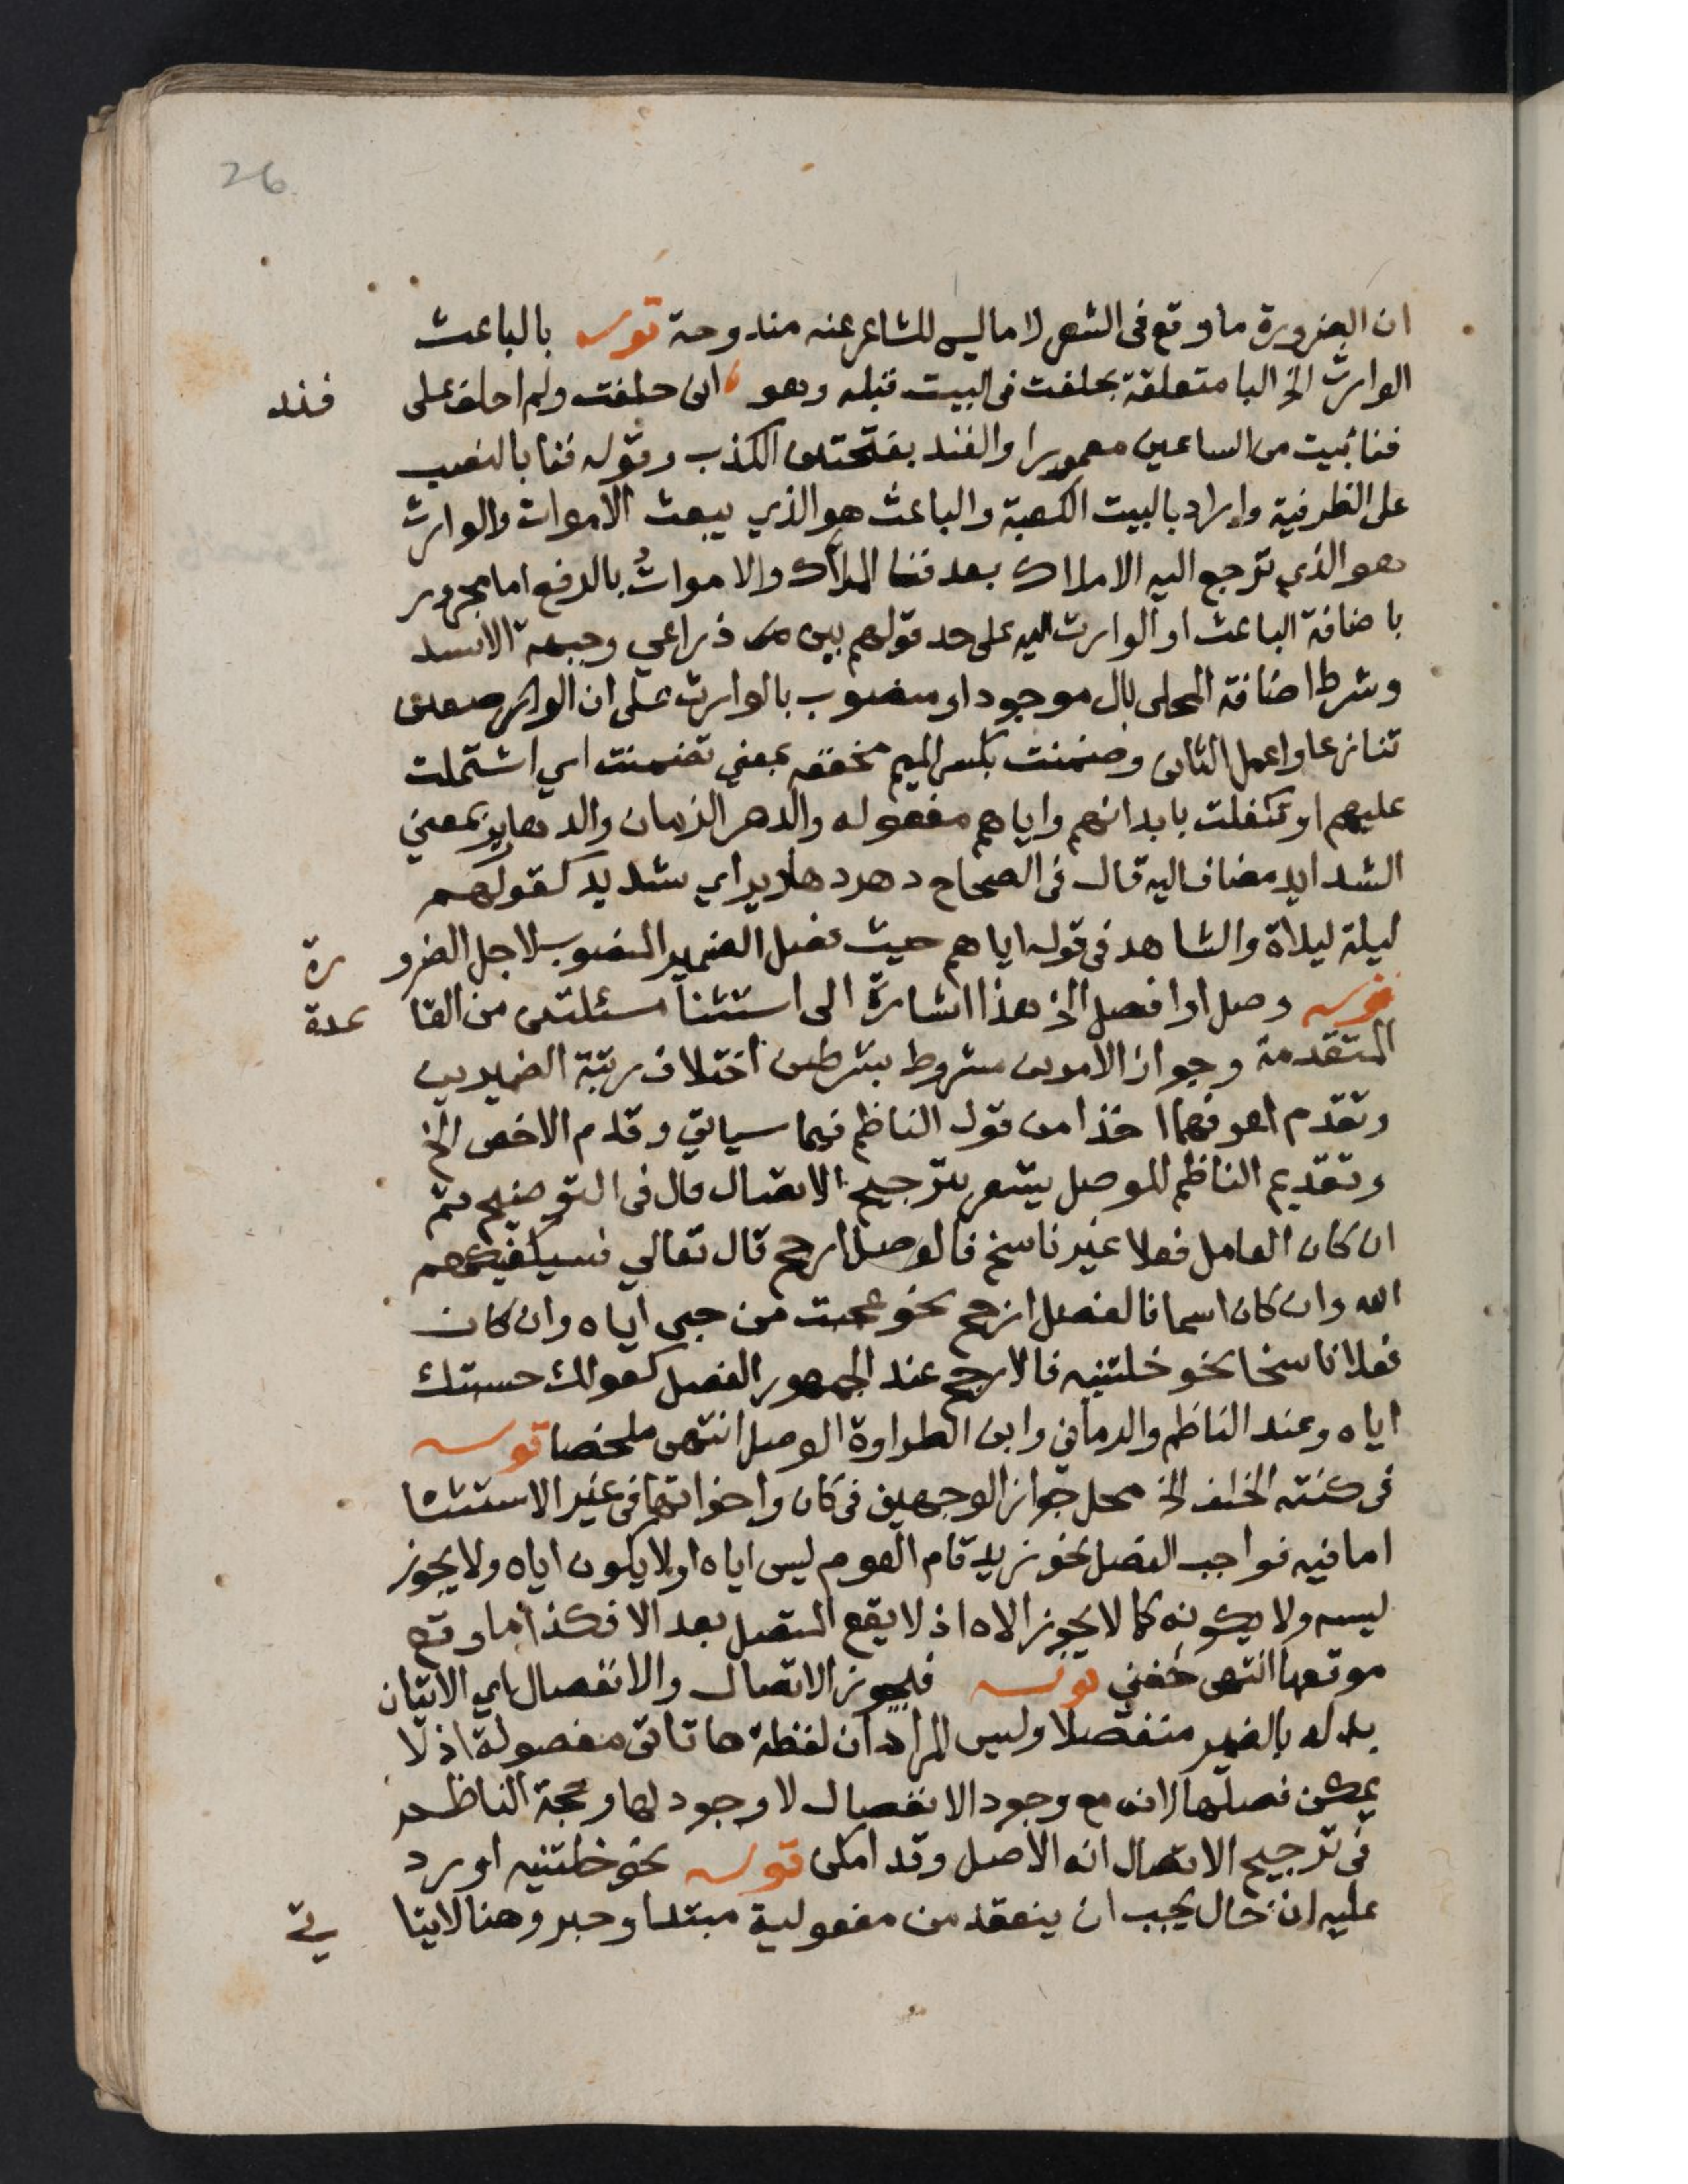 26
ان الضرورة ما وقع فى الشعر لا ما ليس للشاعر عنه مندوحة قوله بالباعث
الوارث الخ البا متعلقة بحلفت فى البيت قبله وهو انى حلفت ولم احلف على فند
فنا بيت من الساعين معمورا والفند بفتحتين الكذب وقوله فنا بالنصب
على الظرفية واراد بالبيت الكعبة والباعث هو الذي يبعث الاموات والوارث
هو الذي ترجع اليه الاملاك بعد فنا الملاك والاموات بالرفع اما مجرور
باضافة الباعث او الوارث اليه على حد قولهم بين ذراعي وجبهة الاسد
وشرط اضافة المحلى بال موجود او منصوب بالوارث على ان الوصفين
تنازعا واعمل الثانى وضمنت بكسر الميم مخففه بمعني تضمنت اي اشتملت
عليهم او تكفلت بابدانهم واياهم مفعوله والدهر الزمان والدهارير بمعني
الشدايد مضاف اليه قال فى الصحاح دهر دهارير اي شديد كقولهم
ليلة ليلاة والشاهد فى قوله اياهم حيث فصل الضمير المنصوب لاجل الضرو رة
قوله وصل او افصل الخ هذا اشارة الى استثنا مسئلتين من القا عدة
المتقدمة وجواز الامرين مشروط بشرطين اختلاف رتبة الضميرين
وتقدم اعرفهما اخذا من قول الناظم فيما سياتي وقدم الاخص الخ
وتقديم الناظم للوصل يشعر بترجيح الاتصال قال فى التوضيح ثم
ان كان العامل فعلا غير ناسخ فالوصل ارجح قال تعالي فسيكفيكهم
الله وان كان اسما فالفصل ارجح نحو عجبت من حبى اياه وان كان
فعلا ناسخا نحو خلتنيه فالارجح عند الجمهور الفصل كقولك حسبتك
اياه وعند الناظم والرماني وابن الطراوة الوصل انتهى ملخصا قوله
فى كنته الخلف الخ محل جواز الوجهين فى كان واخواتها فى غير الاستثنا
اما فيه فواجب الفصل نحو زيد قام القوم ليس اياه او لا يكون اياه ولا يجوز
ليسه ولا يكونه كما لا يجوز الاه اذ لا يقع المتصل بعد الا فكذا ما وقع
موقعها انتهى حفني قوله فيجوز الاتصال والانفصال اي الاتيان
بدله بالضمير منفصلا وليس المراد ان لفظة ها تاتى مفصولة اذ لا
يمكن فصلها لانه مع وجود الانفصال لا وجود لها وحجة الناظم
فى ترجيح الاتصال انه الاصل وقد امكن قوله نحو خلتنيه اورد
عليه ان خال يجب ان ينعقد من مفعوليه مبتدا وخبر وهنا لا يتا تي